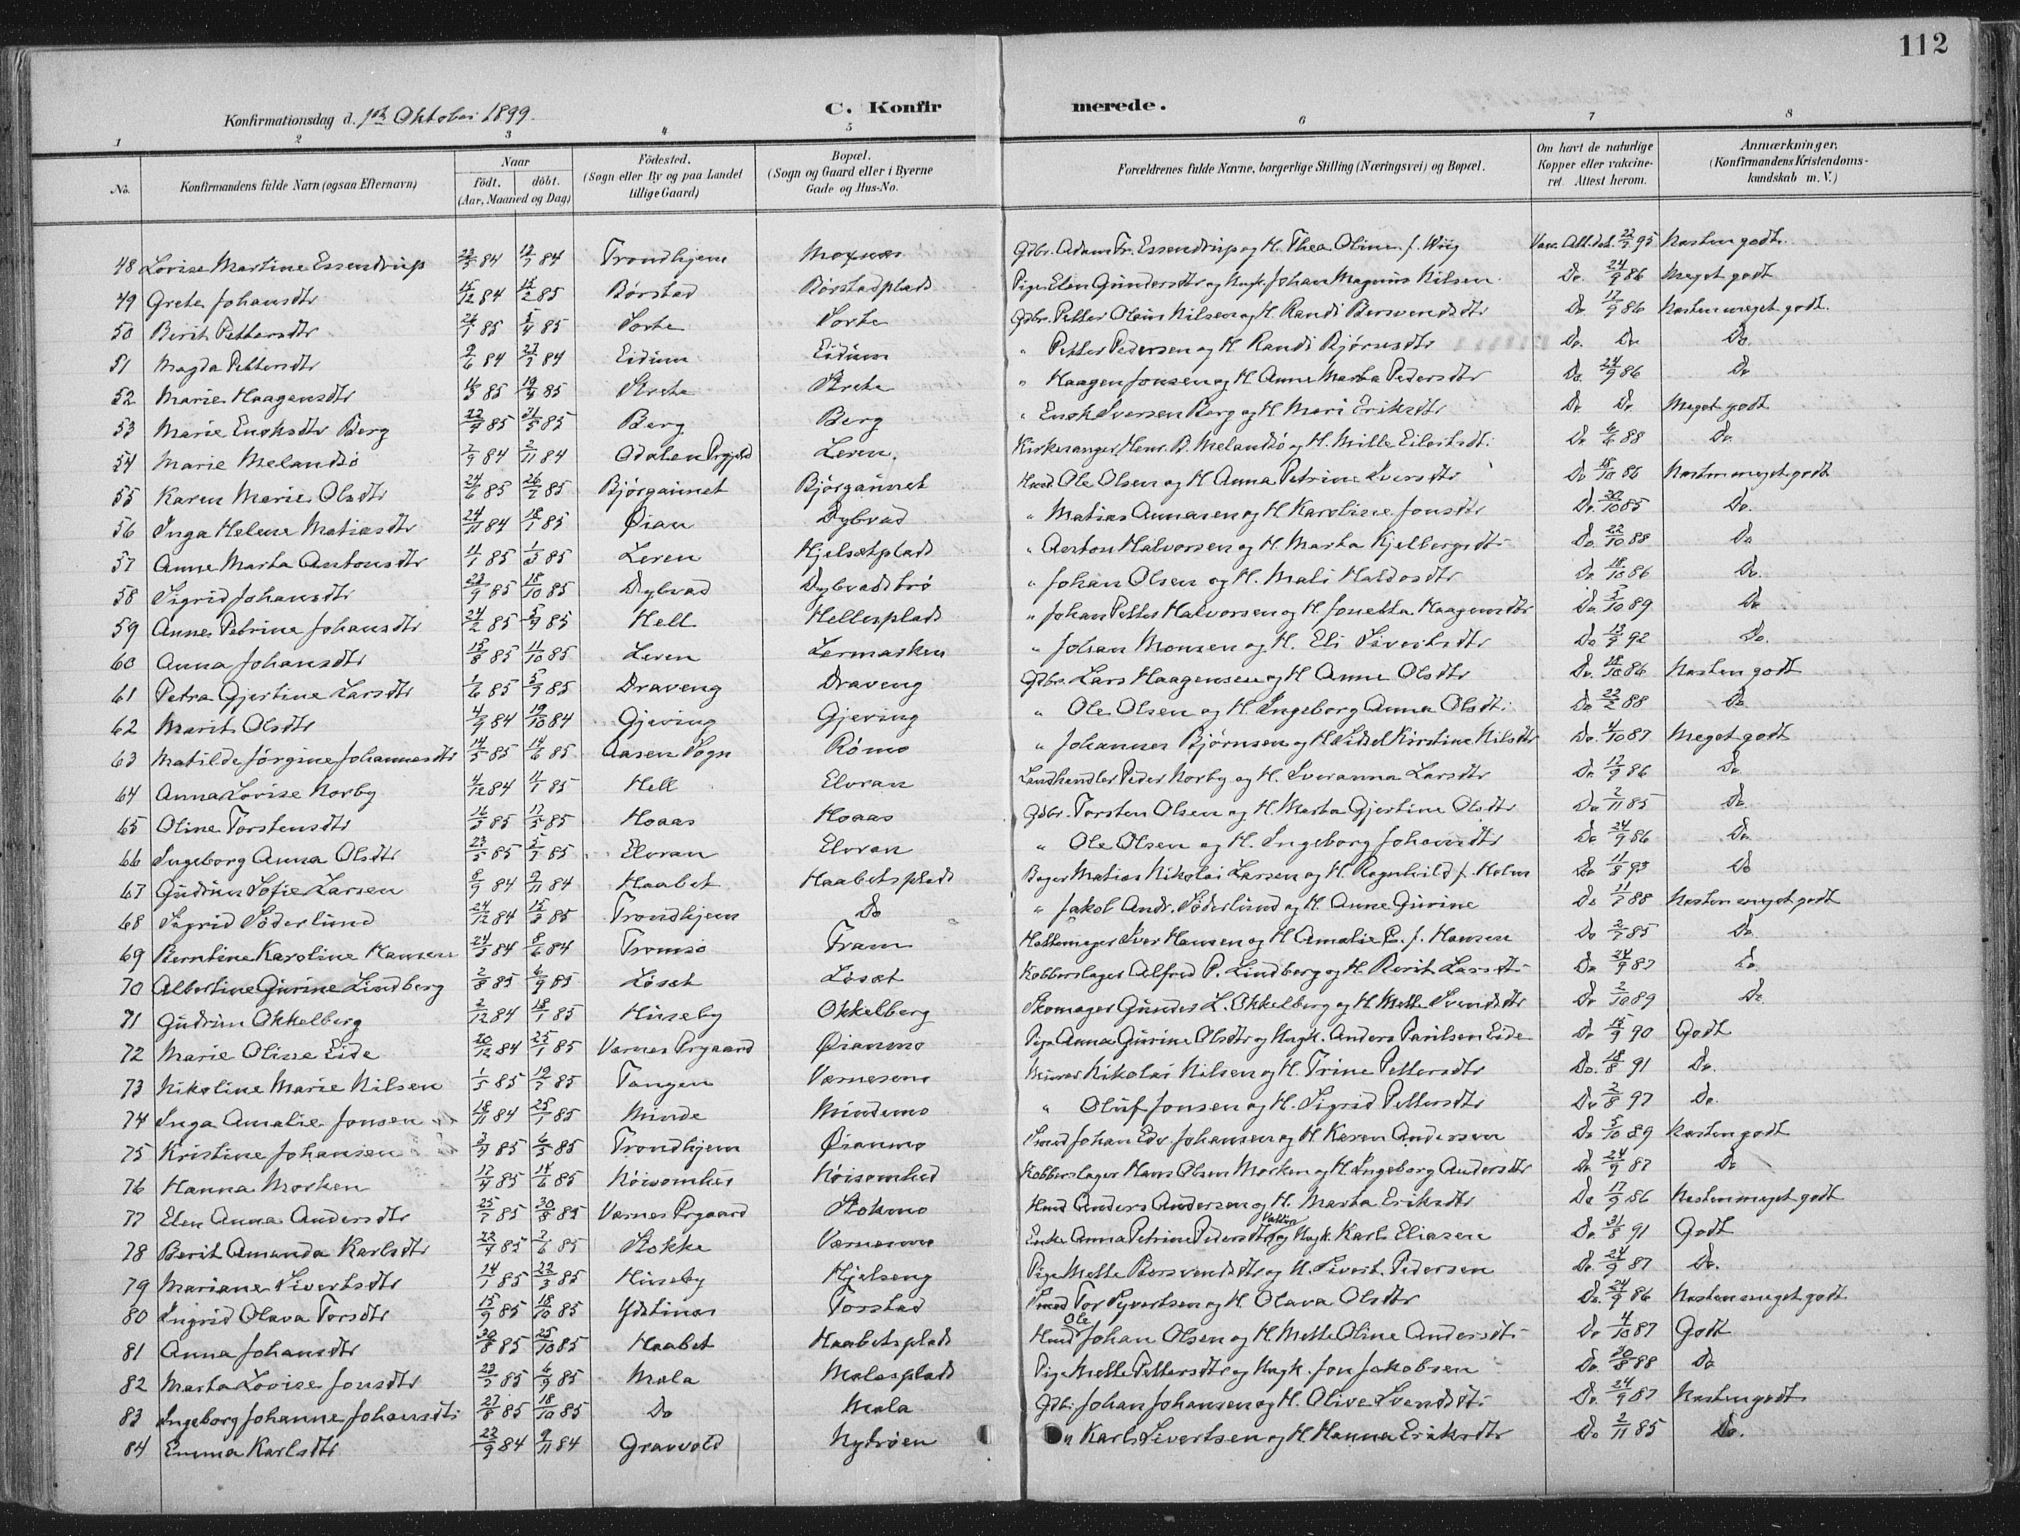 112
Konfirmationsdag d. 1ste Oktober 1899. C. Konfirmerede.
1 2 3 4 5 6 7 8
No. Konfirmandens fulde Navn (ogsaa Efternavn) Naar født. døbt. (Aar, Maaned og Dag) Fødested. (Sogn eller By og paa Landet tillige Gaard) Bopæl. (Sogn og Gaard eller i Byerne Gade og Hus-No. Forældrenes fulde Navne, borgerlige Stilling (Næringsvei) og Bopæl. Om havt de naturlige Kopper eller vaccineret. Attest herom. Anmærkninger. (Konfirmandens Kristendomskundskab m. V.)
48 Lovise Martine Essendrup 84 84 Trondhjem Moxnes Gdbr. Adam Fr. Essendrup og H. Thea Oline f. Wiig 95 Næsten godt.
49 Grete Johansdtr 15/12 84 15/2 85 Børstad Børstadplads Pige Elen Gundersdtr og Ungk. Johan Magnus Nilsen Do. 24/9 86 Meget godt
50 Berit Pettersdtr 26/1 85 5/4 85 Sorte Sorte Gdbr. Petter Olaus Nilsen og H. Randi Bersvendsdtr Do 17/9 86 Næsten meget godt.
51 Magda Pettersdtr 9/6 84 27/7 84 Eidum Eidum " Petter Pedersen og H. Randi Bjørnsdtr Do. Do Do.
52 Marie Haagensdtr 85 19/4 85 " Haagen Jonsen og H. Anne Marta Pedersdtr Do. 24/9 86 Do
53 Marie Enoksdtr Berg 85 21/5 85 Berg Berg " Enok Iversen Berg og H. Mari Eriksdtr Do Do. Meget godt
54 Marie Melandsø 2/9 84 2/11 84 Odalen Prgjeld Leren. Kirkesanger Henr. B. Melandsø og H. Mille Eilertsdt. Do 6/6 88 Do.
55 Karen Marie Olsdtr 24/6 85 26/7 85 Bjørgaunet Bjørgaunet Hmd Ole Olsen og H Anna Petrine Iversdtr Do 18/10 86 Næsten meget godt
56 Inga Helene Matiasdtr 24/11 84 18/1 85 Øian Dybvad " Matias Annasen og H Karoline Jonsdtr Do. 20/10 85 Do.
57 Anne Marta Antonsdtr 85 1/3 85 Leren Hjelsetplads " Anton Halvorsen og H. Marta Kjelbergsdtr Do. 22/10 88 Do
58 Sigrid Johansdtr 85 18/10 85 Dybvad Dybvadtrø " Johan Olsen og H. Mali Haldosdtr Do 18/10 86 Do.
59 Anne Petrine Johansdtr 24/2 85 85 Hell Hellesplads " Johan Petter Halvorsen og H Jonetta Haagensdtr Do. 3/10 89 Do
60 Anna Johansdtr 15/8 85 11/10 85 Leren Lermarken " Johan Monsen og H. Eli Sivertsdtr Do 92 Do.
61 Petra Gjertine Larsdtr 1/6 85 85 Draveng Draveng Gdbr. Lars Haagensen og H Anne Olsdtr Do. 18/10 86 Næsten godt
62 Marit Olsdtr 4/9 84 19/10 84 Gjeving Gjeving " Ole Olsen og H. Ingeborg Anna Olsdt. Do 22/2 88 Do
63 Matilde Jørgine Johannesdtr 14/5 85 14/6 85 Aasen Sogn Rømo " Johannes Bjørnsen og H. Sidsel Kirstine Nilsdtr Do. 4/10 87 Meget godt
64 Anna Lovise Norby 4/12 84 85 Hell Elvran Landhandler Peder Norby og H. Iveranna Larsdtr Do 17/9 86 Do
65 Oline Torstensdtr 16/3 85 17/5 85 Hoaas Hoaas Gdbr. Torsten Olsen og H. Marta Gjertine Olsdtr Do 2/11 85 Do
66 Ingeborg Anna Olsdtr 85 85 Elvran Elvran " Ole Olsen og H. Ingeborg Johansdtr Do 24/9 86 Do
67 Gudrun Sofie Larsen 84 9/11 84 Haabet Haabetsplads Bager Matias Nikolai Larsen og H. Ragnhild f. Holm Do 11/8 93 Do
68 Sigrid Søderlund 24/12 84 15/3 85 Trondhjem Do " Jakob Andr. Søderlund og H. Anne Gurine Do 11/7 88 Næsten meget godt
69 Berntine Karoline Hansen 24/3 84 8/6 84 Tromsø Fram Hattemager Iver Hansen og H Amalie B. f. Hansen Do 2/7 85 Do.
70 Albertine Gurine Lindberg 2/8 85 6/9 85 Løset Løset Kobberslager Alfred P. Lindberg og H. Berit Larsdtr Do 24/9 87 Do.
71 Gudrun Okkelberg 2/12 84 18/1 85 Huseby Okkelberg Skomager Gunder L. Okkelberg og H Mette Svendsdtr Do 2/10 89 Do.
72 Marie Olisse Eide 20/12 84 25/1 85 Værnes Prgaard Øianmo Pige Anna Gurine Olsdtr og Ungk. Anders Paulsen Eide Do 15/9 90 Godt
73 Nikoline Marie Nilsen 85 19/7 85 Tangen Værnesmo Murer Nikolai Nilsen og H. Trine Pettersdtr Do. 18/8 91 Do.
74 Inga Amalie Jonsen 18/11 84 85 Minde Mindemo " Oluf Jonsen og H. Sigrid Pettersdtr Do 2/8 97 Do.
75 Kristine Johansen 85 85 Trondhjem Øianmo Smed Johan Edv Johansen og H Karen Andersen Do 5/10 89 Næsten godt
76 Hanna Morken 17/4 85 14/6 85 Nøisomhed Nøisomhed Kobberslager Hans Olsen Morken og H. Ingeborg Andersdtr Do. 24/9 87 Do
77 Elen Anna Andersdtr 25/7 85 30/8 85 Værnes Prgaard Stokmo Hmd Anders Andersen og H. Marta Eriksdtr Do 17/9 86 Næsten meget godt
78 Berit Amanda Karlsdtr 22/4 85 7/6 85 Stokke Værnesmo Enke Anna Petrine Pedersdtr og Ungk. Karl Eliasen Do. 31/8 91 Godt
79 Mariane Sivertsdtr 14/1 85 22/3 85 Huseby Hjelseng Pige Mette Bersvendsdtr og U. Sivert Pedersen Do. 24/9 87 Do.
80 Ingrid Olava Torsdtr 15/9 85 18/10 85 Ydstines Torstad Smed Tor Syvertsen og H. Olava Olsdtr Do. 24/9 86 Næsten meget godt
81 Anna Johansdtr 20/8 85 25/10 85 Haabet Haabetsplads Hmd Ole Johan Olsen og H. Mette Oline Andersdt. Do 4/10 87 Godt
82 Marta Lovise Jonsdtr 85 6/9 85 Mæla Mælesplads Pige Mette Pettersdtr og Ungk. Jon Jakobsen Do. 20/8 88 Do
83 Ingeborg Johanne Johansdt. 27/8 85 18/10 85 Do Mæla Gdbr. Johan Johansen og H. Olive Svendsdt. Do. 24/9 87 Næsten godt
84 Emma Karlsdtr 23/9 84 9/11 84 Græsvold Nytrøen " Karl Sivertsen og H. Hanna Eriksdtr Do 2/11 85 Do.